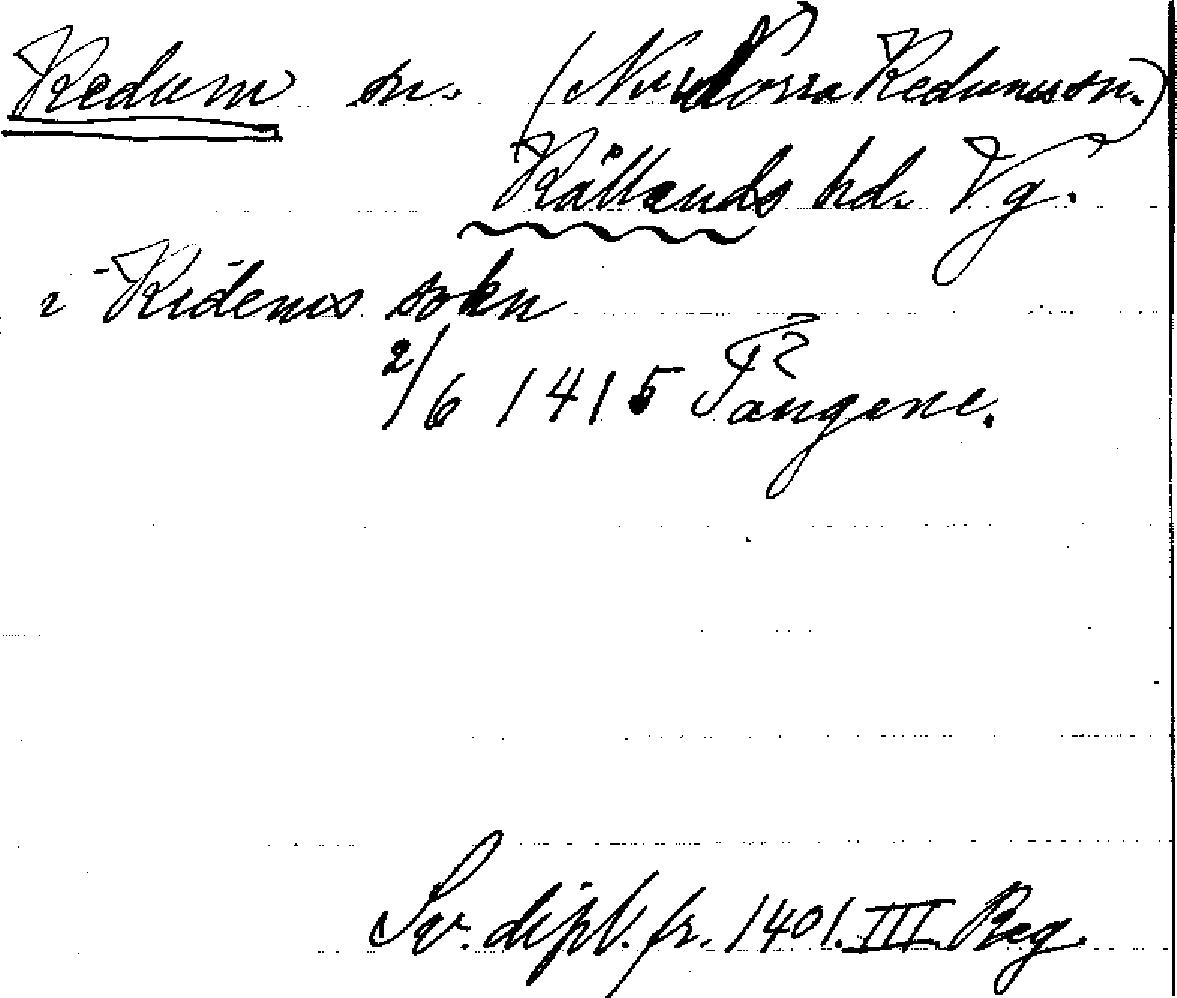 Kedum sn. (Nu Norra Kedums sn.)
Kållands hd. Vg.
i Kidems sokn
2/6 1415 Tångene.
Sv. dipl. fr. 1401. III. Reg.